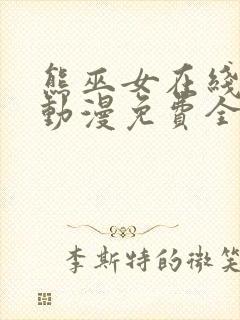 熊巫女在綫
動漫免費全
李斯特的微笑